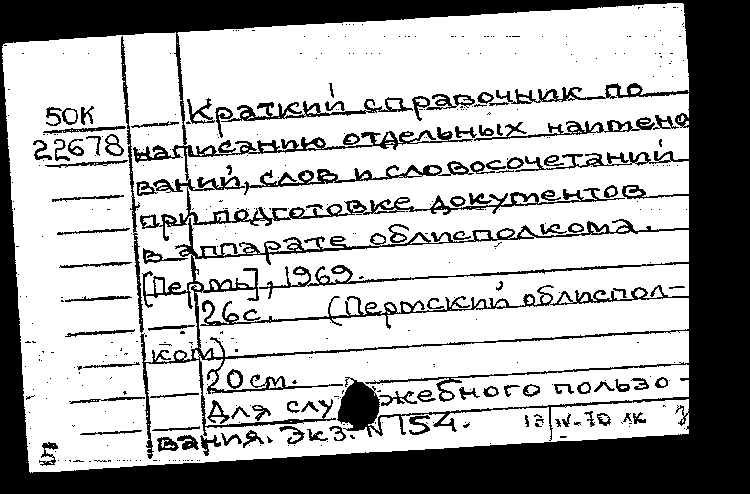 50К
22678
Краткий справочник по
написанию отдельных наимено
ваний, слов и словосочетаний
при подготовке документов
в аппарате облисполкома.
[Пермь], 1969.
26с. (Пермский облиспол-
ком).
20см.
Для служебного пользо-
вания. Экз. N 154.
IV-70 ЛК